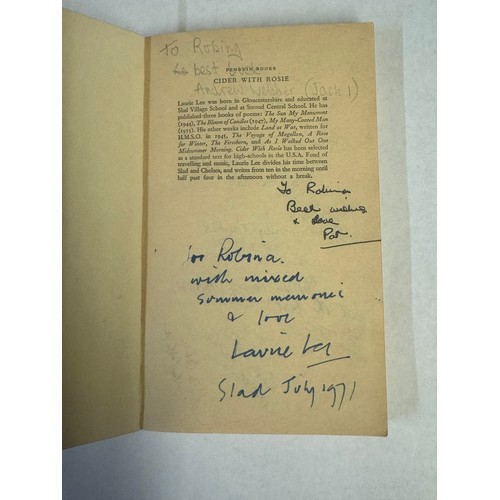 To Robina
best love
Andrew Webber (Jack!)
PENGUIN BOOKS
CIDER WITH ROSIE
Laurie Lee was born in Gloucestershire and educated at
Slad Village School and at Stroud Central School. He has
published three books of poems: The Sun My Monument
(1944), The Bloom of Candles (1947), My Many-Coated Man
(1955). His other works include Land at War, written for
H.M.S.O. in 1945, The Voyage of Magellan, A Rose
for Winter, The Firstborn, and As I Walked Out One
Midsummer Morning. Cider With Rosie has been selected
as a standard text for high-schools in the U.S.A. Fond of
travelling and music, Laurie Lee divides his time between
Slad and Chelsea, and writes from ten in the morning until
half past four in the afternoon without a break.
To Robina
Best wishes
& love
Pat.
to Robina.
with mixed
summer memories
& love
Laurie Lee
Slad July 1971